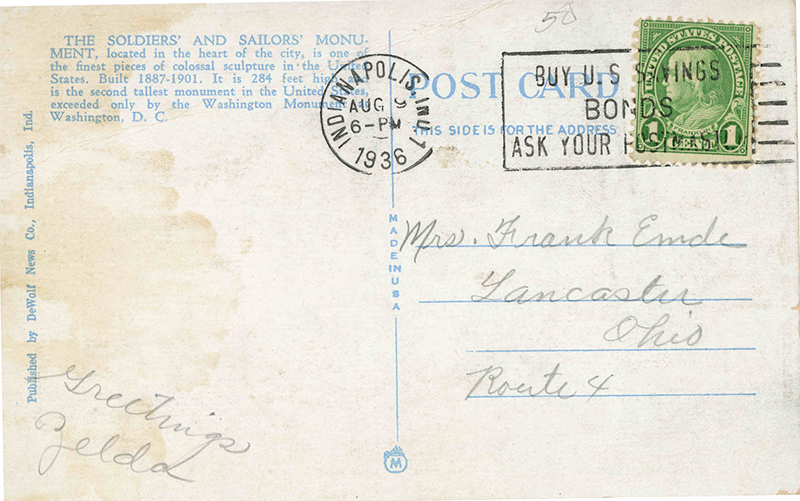 THE SOLDIERS' AND SAILORS' MONU-
MENT, located in the heart of the city, is one of
the finest pieces of colossal sculpture in the United
States. Built 1887-1901. It is 284 feet high and
is the second tallest monument in the United States,
exceeded only by the Washington Monument,
Washington, D. C.
Published by DeWolf News Co., Indianapolis, Ind.
Greetings
Zelda
INDIANAPOLIS, IND. 1
AUG 9
6-PM
1936
50
POST CARD
THIS SIDE IS FOR THE ADDRESS
BUY U.S SAVINGS
BONDS
ASK YOUR
UNITED STATES POSTAGE
FRANKLIN
1 1
MADE IN USA
Mrs. Frank Emde
Lancaster
Ohio
Route 4
M